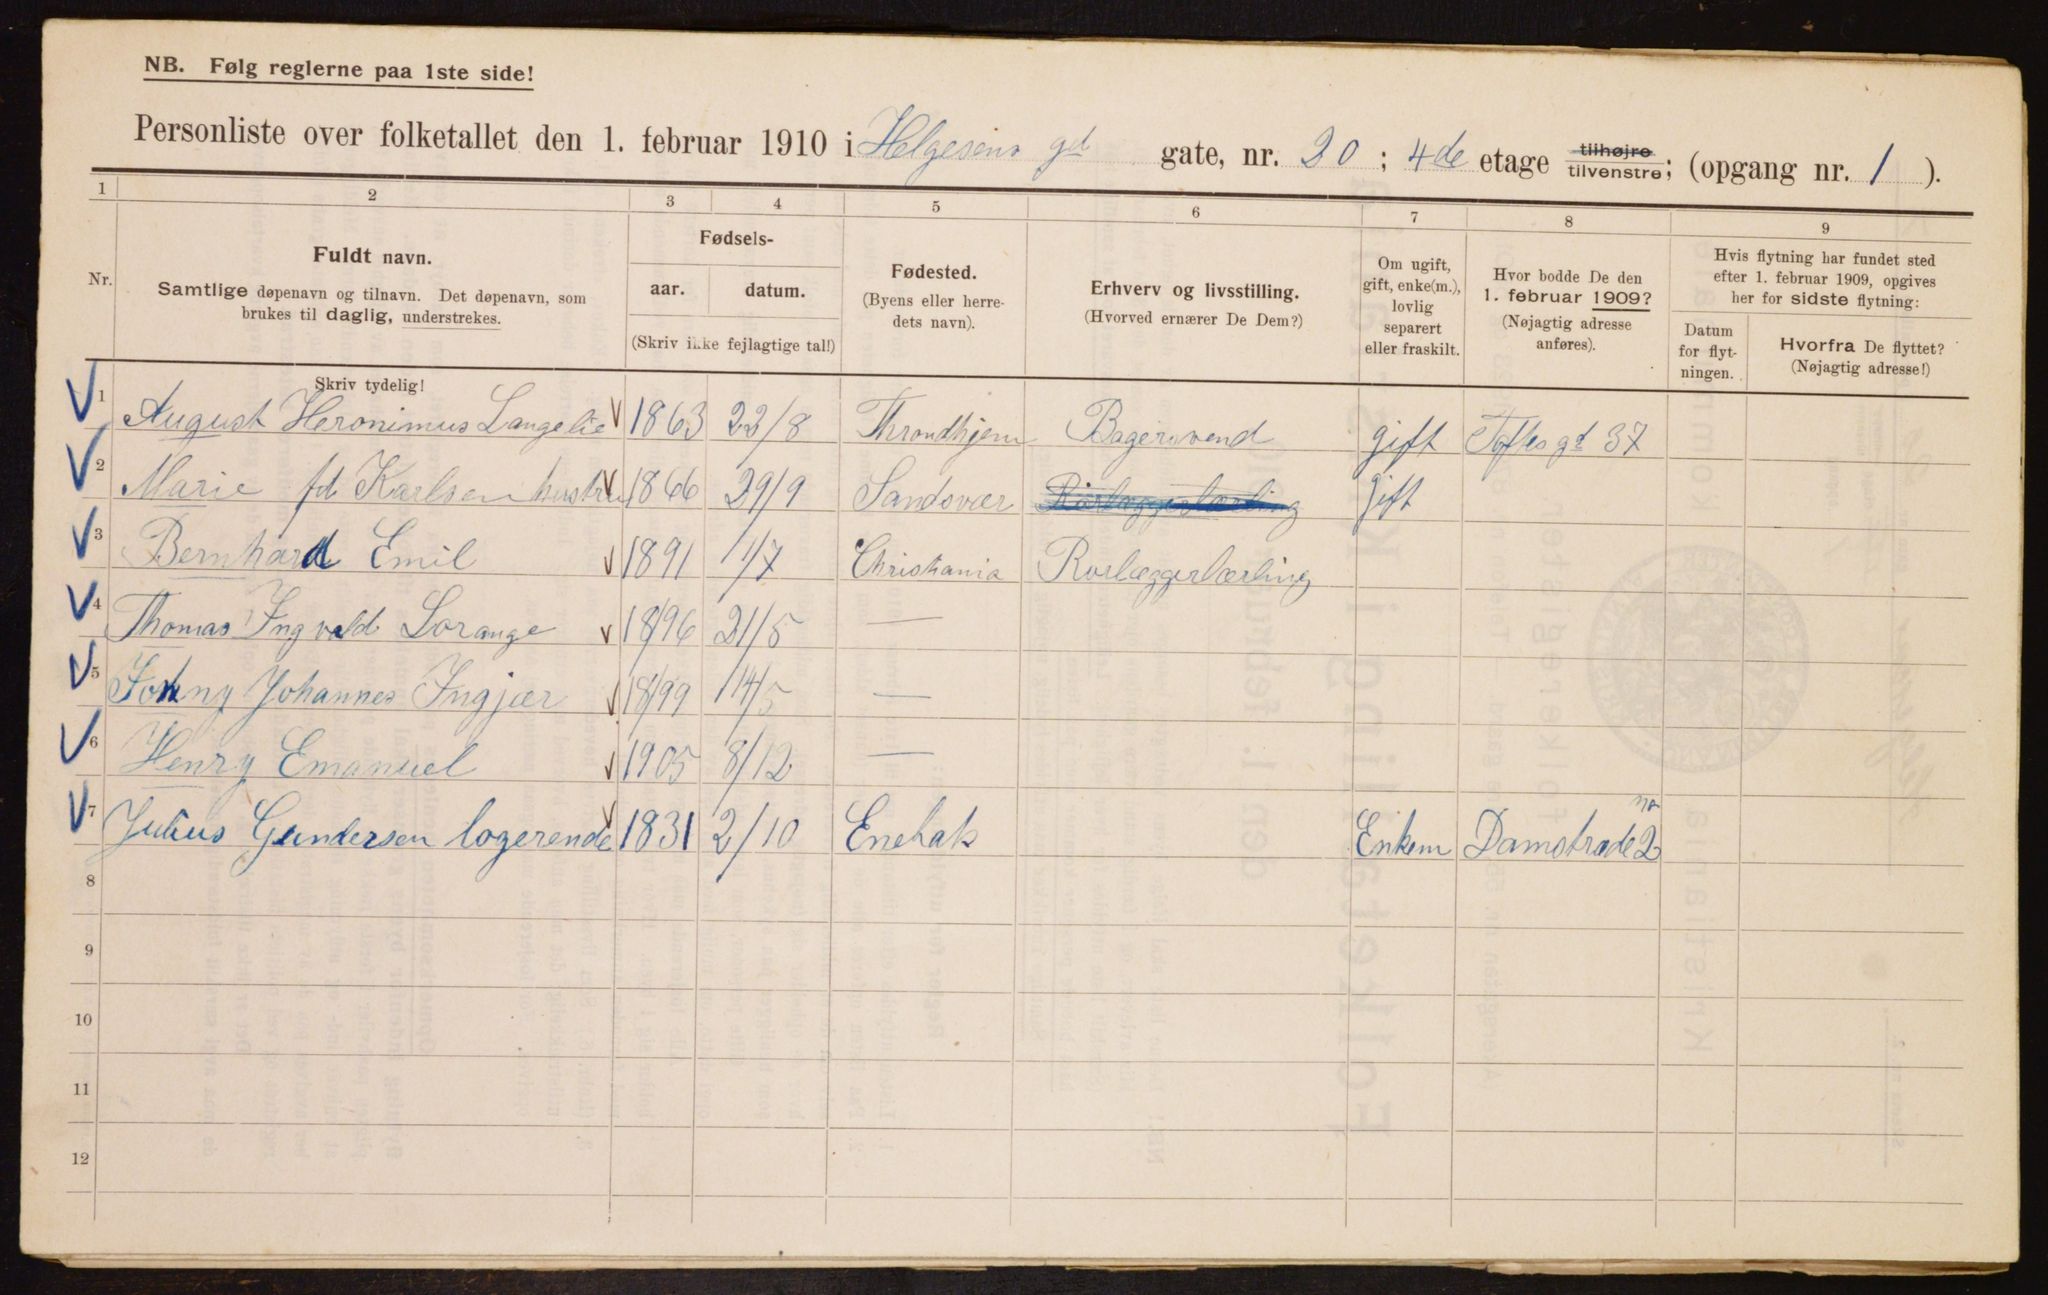 NB. Følg reglerne paa 1ste side!
Personliste over folketallet den 1. februar 1910 i Helgesens gd gate, nr. 20 ; 4de etage tilhøjre tilvenstre; (opgang nr. 1 ).
1 2 3 4 5 6 7 8 9
Nr.
Fuldt navn.
Samtlige døpenavn og tilnavn. Det døpenavn, som
brukes til daglig, understrekes.
Skriv tydelig!
Fødsels-
aar. datum.
(Skriv ikke fejlagtige tal!)
Fødested.
(Byens eller herre-
dets navn).
Erhverv og livsstilling.
(Hvorved ernærer De Dem?)
Om ugift,
gift, enke(m.),
lovlig
separert
eller fraskilt.
Hvor bodde De den
1. februar 1909?
(Nøjagtig adresse
anføres).
Hvis flytning har fundet sted
efter 1. februar 1909, opgives
her for sidste flytning:
Datum
for flyt-
ningen.
Hvorfra De flyttet?
(Nøjagtig adresse!)
1 August Heronimus Langelie 1863 22/8 Throndhjem Bagersvend gift Toftes gd 37
2 Marie fd Karlsen hustru 1866 29/9 Sandsvær Rørlæggerlærling gift
3 Bernhard Emil 1891 1/7 Christiania Rørlæggerlærling
4 Thomas Ingvald Lorange 1896 21/5 —
5 Johny Johannes Ingjær 1899 14/5 —
6 Henry Emanuel 1905 8/12 —
7 Julius Gundersen logerende 1831 2/10 Enebak Enkem Damstrade no 2
8
9
10
11
12